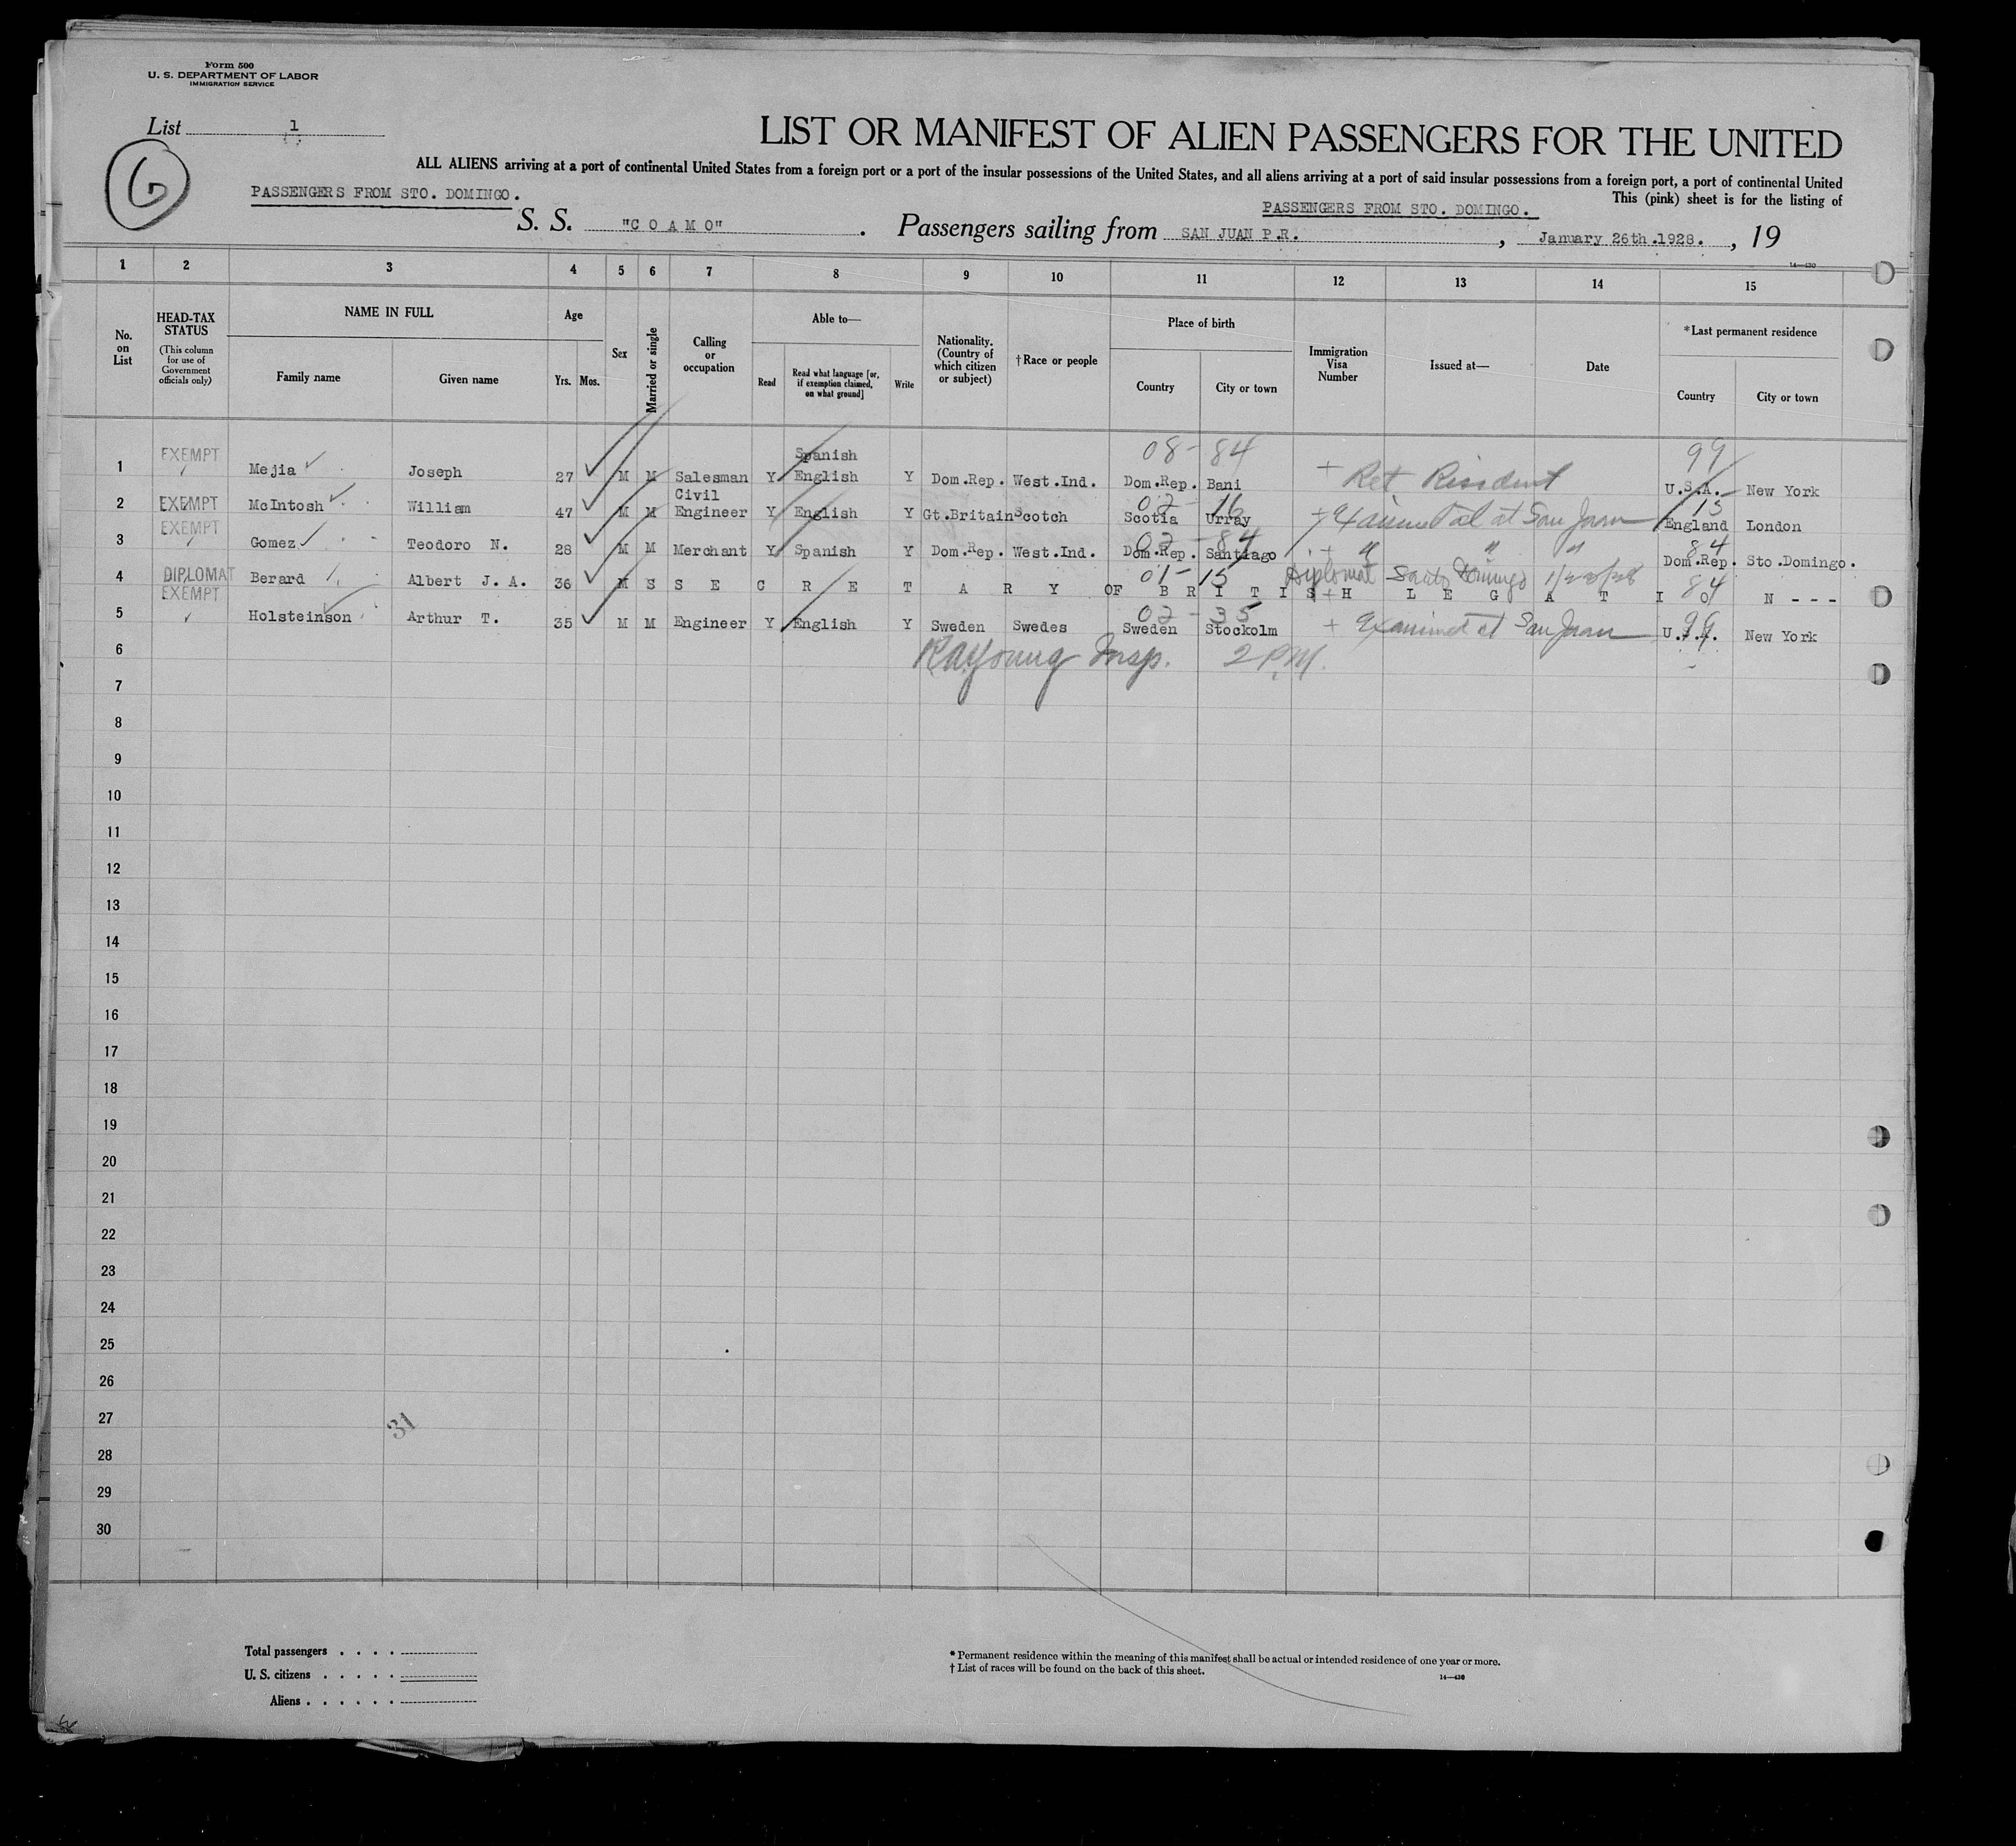 Form 500
U. S. DEPARTMENT OF LABOR
IMMIGRATION SERVICE
List 1
6
LIST OR MANIFEST OF ALIEN PASSENGERS FOR THE UNITED
ALL ALIENS arriving at a port of continental United States from a foreign port or a port of the insular possessions of the United States, and all aliens arriving at a port of said insular possessions from a foreign port, a port of continental United
This (pink) sheet is for the listing of
PASSENGERS FROM STO. DOMINGO. PASSENGERS FROM STO. DOMINGO.
S. S. "C O A M O". Passengers sailing from SAN JUAN P.R., January 26th.1928., 19
14—430
1 2 3 4 5 6 7 8 9 10 11 12 13 14 15
No. on List
HEAD-TAX STATUS
(This column for use of Government officials only)
NAME IN FULL
Family name Given name
Age
Yrs. Mos.
Sex
Married or single
Calling or occupation
Able to—
Read
Read what language [or, if exemption claimed, on what ground]
Write
Nationality. (Country of which citizen or subject)
†Race or people
Place of birth
Country City or town
Immigration Visa Number
Issued at—
Date
*Last permanent residence
Country City or town
08 - 84 99
1 EXEMPT Mejia Joseph 27 M M Salesman Y Spanish English Y Dom.Rep. West.Ind. Dom.Rep. Bani + Ret Resident U.S.A. New York
02 - 16 15
2 EXEMPT McIntosh William 47 M M Civil Engineer Y English Y Gt.Britain Scotch Scotia Urray + Examined at San Juan England London
02 - 84 84
3 EXEMPT Gomez Teodoro N. 28 M M Merchant Y Spanish Y Dom.Rep. West.Ind. Dom.Rep. Santiago + " " " Dom.Rep. Sto.Domingo.
01 - 15 Diplomat Santo Domingo 84
4 DIPLOMAT Berard Albert J. A. 36 M S S E C R E T A R Y OF B R I T I S H L E G A T I O N - - -
02 - 35 99
5 EXEMPT Holsteinson Arthur T. 35 M M Engineer Y English Y Sweden Swedes Sweden Stockolm + Examined at San Juan U.S.A. New York
6 RA Young Insp. 2 P.M.
7
8
9
10
11
12
13
14
15
16
17
18
19
20
21
22
23
24
25
26
27
31
28
29
30
Total passengers . . . .
U. S. citizens . . . . .
Aliens . . . . . .
* Permanent residence within the meaning of this manifest shall be actual or intended residence of one year or more.
† List of races will be found on the back of this sheet.
14—430